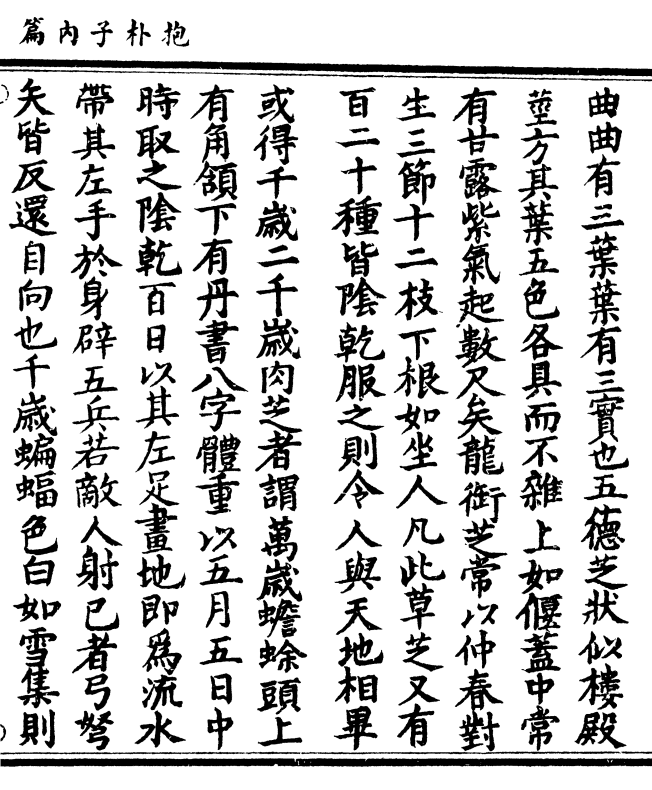 抱朴子内篇
曲曲有三葉葉有三實也五德芝狀似樓殿
莖方其葉五色各具而不雜上如偃蓋中常
有甘露紫氣起數尺矣龍銜芝常以仲春對
生三節十二枝下根如坐人凡此草芝又有
百二十種皆陰乾服之則令人與天地相畢
或得千歲二千歲肉芝者謂萬歲蟾蜍頭上
有角頷下有丹書八字體重以五月五日中
時取之陰乾百日以其左足畫地即爲流水
帶其左手於身辟五兵若敵人射已者弓弩
矢皆反還自向也千歲蝙蝠色白如雪集則